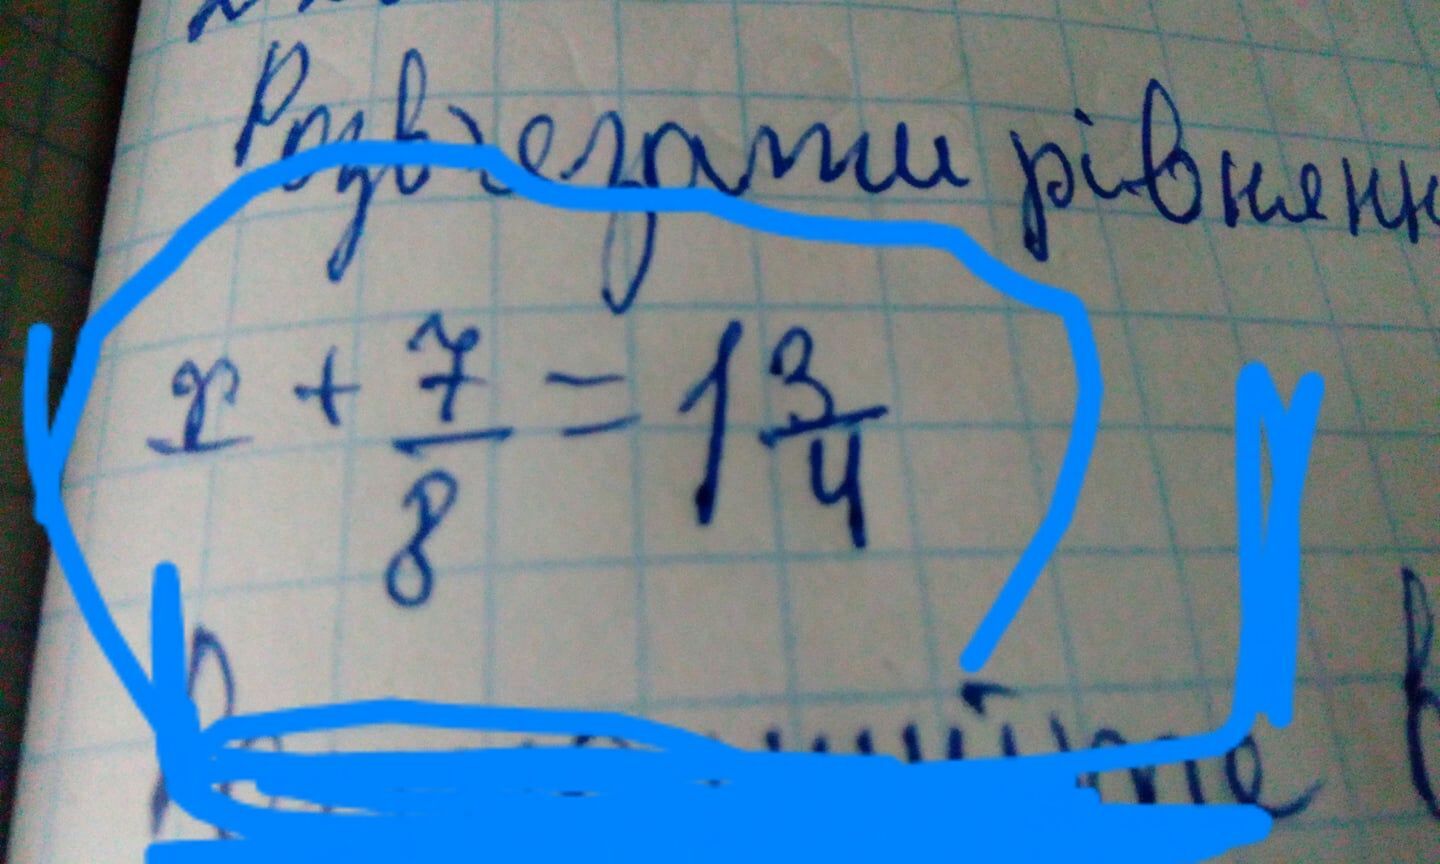 Розвʼезати рівненн
x + 7/8 = 1 3/4